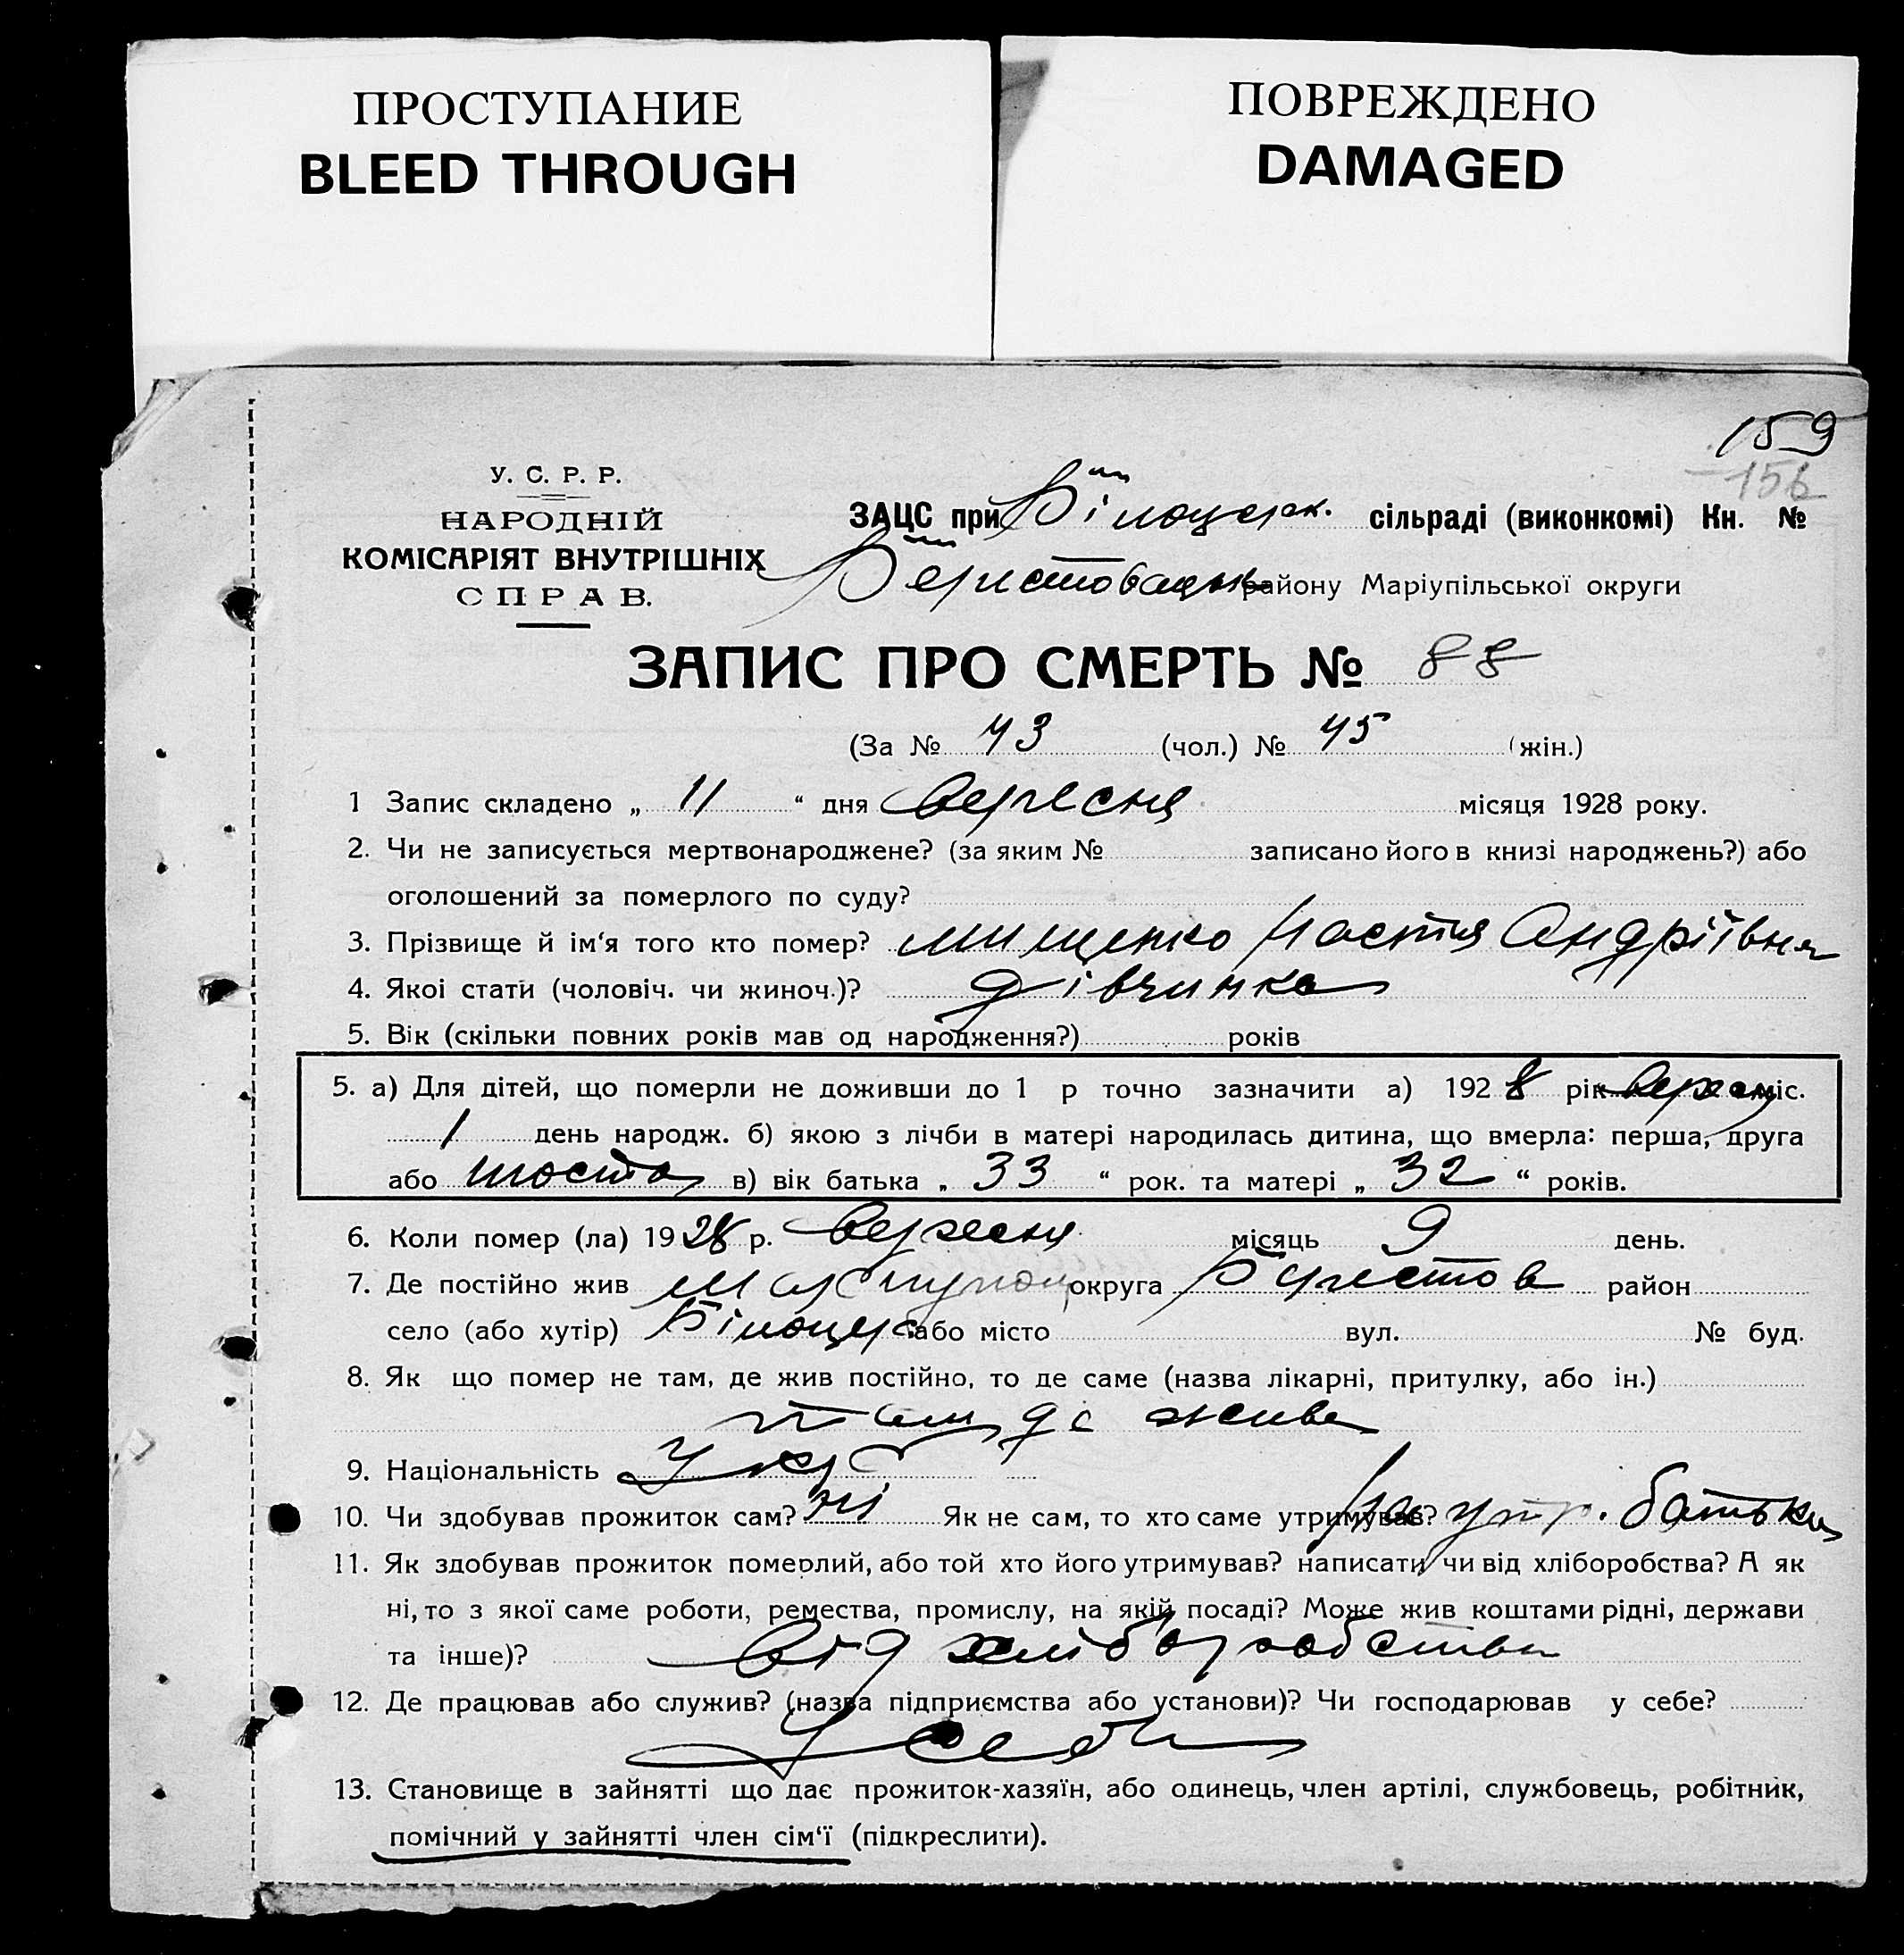 ПРОСТУПАНИЕ
BLEED THROUGH
ПОВРЕЖДЕНО
DAMAGED
159
156
У. С. Р. Р.
НАРОДНІЙ
КОМІСАРІЯТ ВНУТРІШНІХ
СПРАВ.
ЗАЦС при Білоцерк. сільраді (виконкомі) Кн. №
району Маріупільської округи
ЗАПИС ПРО СМЕРТЬ № 88
(За № 43 (чол.) № 45 (жін.)
1 Запис складено „ 11 “ дня вересня місяця 1928 року.
2. Чи не записується мертвонароджене? (за яким № записано його в книзі народжень?) або
оголошений за померлого по суду?
3. Прізвище й ім‘я того кто помер? Мищенко Настя Андріївна
4. Якоі стати (чоловіч. чи жиноч.)? дівчинка
5. Вік (скільки повних років мав од народження?) років
5. а) Для дітей, що померли не доживши до 1 р точно зазначити а) 1928 рік вересня міс.
1 день народж. б) якою з лічби в матері народилась дитина, що вмерла: перша, друга
або шоста в) вік батька „ 33 “ рок. та матері „ 32 “ років.
6. Коли помер (ла) 1928 р. вересня місяць 9 день.
7. Де постійно жив округа район
село (або хутір) Білоцерк або місто вул. № буд.
8. Як що помер не там, де жив постійно, то де саме (назва лікарні, притулку, або ін.)
там де живе
9. Національність Укр
10. Чи здобував прожиток сам? ні Як не сам, то хто саме утримував? На утр. батька
11. Як здобував прожиток померлий, або той хто його утримував? написати чи від хліборобства? А як
ні, то з якої саме роботи, ремества, промислу, на якій посаді? Може жив коштами рідні, держави
та інше)? від хліборобства
12. Де працював або служив? (назва підприємства або установи)? Чи господарював у себе?
У себе
13. Становище в зайнятті що дає прожиток-хазяїн, або одинець, член артілі, службовець, робітник,
помічний у зайнятті член сім‘ї (підкреслити).